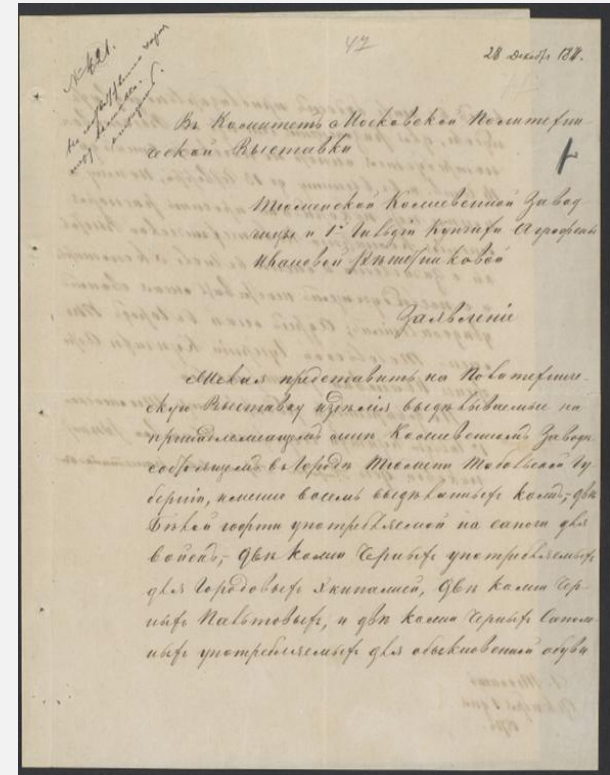 47
28 Декабр 187.
№ 421.
Въ Комитетъ Московской Политехни
ческой Выставки
Тюменской Кожевенной Завод
чицы и 1й Гильдіи Купчихи Агрофены
Ивановой Рѣшетниковой
Заявленіе
Желая представить на Политехниче-
скую Выставку издѣлія выдѣлываемые на
принадлежащемъ мнѣ Кожевенномъ Заводѣ
въ Городѣ Тюмени Тобольской Гу
берніи, имянно восемь выдѣланныхъ кожъ,- двѣ
Бѣлой юфти употребляемой на сапоги для
войскъ,- двѣ кожи Черныхъ употребляемыхъ
для Городовыхъ Экипажей, двѣ кожи Чер
ныхъ, и двѣ кожи Черныхъ Сапож
ныхъ употребляемыхъ для обыкновенной обуви